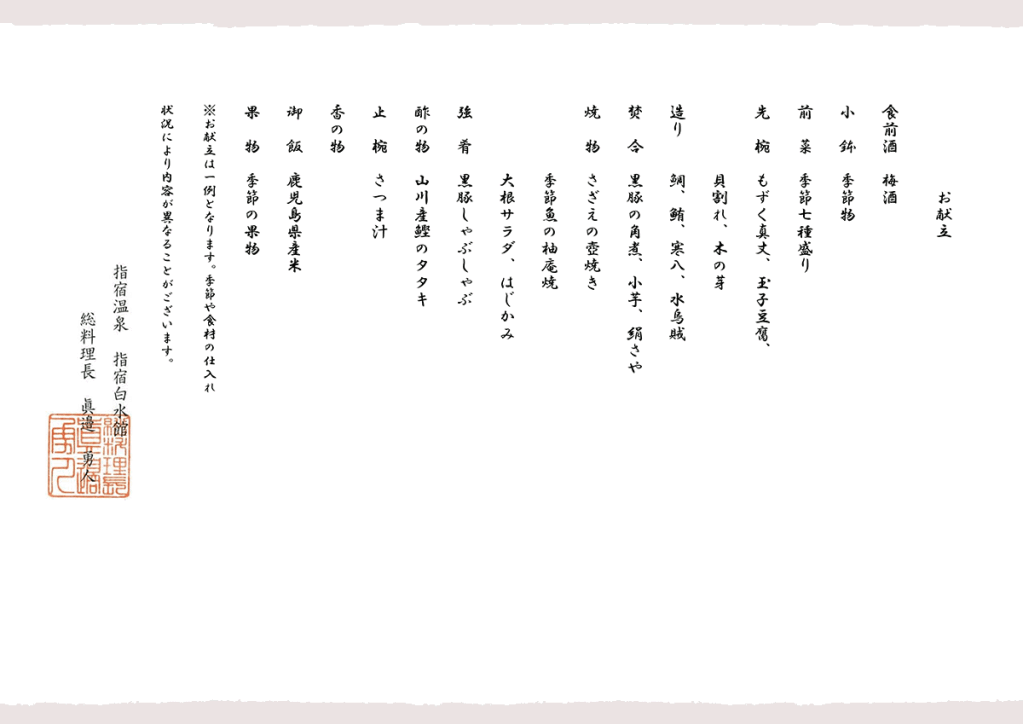 お献立
食前酒　梅酒
小　鉢　季節物
前　菜　季節七種盛り
先　椀　もずく真丈、玉子豆腐、
貝割れ、木の芽
造り　　鯛、鮪、寒八、水烏賊
焚　合　黒豚の角煮、小芋、絹さや
焼　物　さざえの壺焼き
季節魚の柚庵焼
大根サラダ、はじかみ
強　肴　黒豚しゃぶしゃぶ
酢の物　山川産鰹のタタキ
止　椀　さつま汁
香の物
御　飯　鹿児島県産米
果　物　季節の果物
※お献立は一例となります。季節や食材の仕入れ
状況により内容が異なることがございます。
指宿温泉　指宿白水館
総料理長　眞邉　勇人
総料理長眞邉勇人